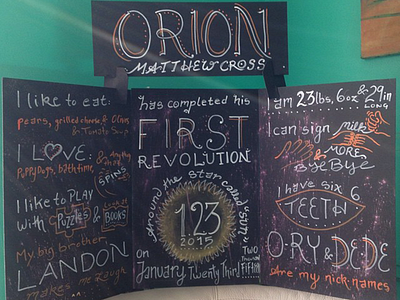 ORION
MATTHEW CROSS
I like to eat:
pears, grilled cheese, & Olives
& Tomato Soup
I LOVE:
PUPPY DOGS, bath time, & Anything
SPINS
I like to PLAY
with Puzzles & Books
My big brother,
LANDON
makes me laugh
has completed his
FIRST
REVOLUTION
Around the Star called "SUN"
1.23
2015
on
January Twenty Third
TWO
Thousand
Fifteen
I am 23 lbs, 6oz & 29 in
LONG
I can sign Milk
& MORE,
& BYE BYE
I have six 6
TEETH
O-RY & DEDE
Are my nicknames